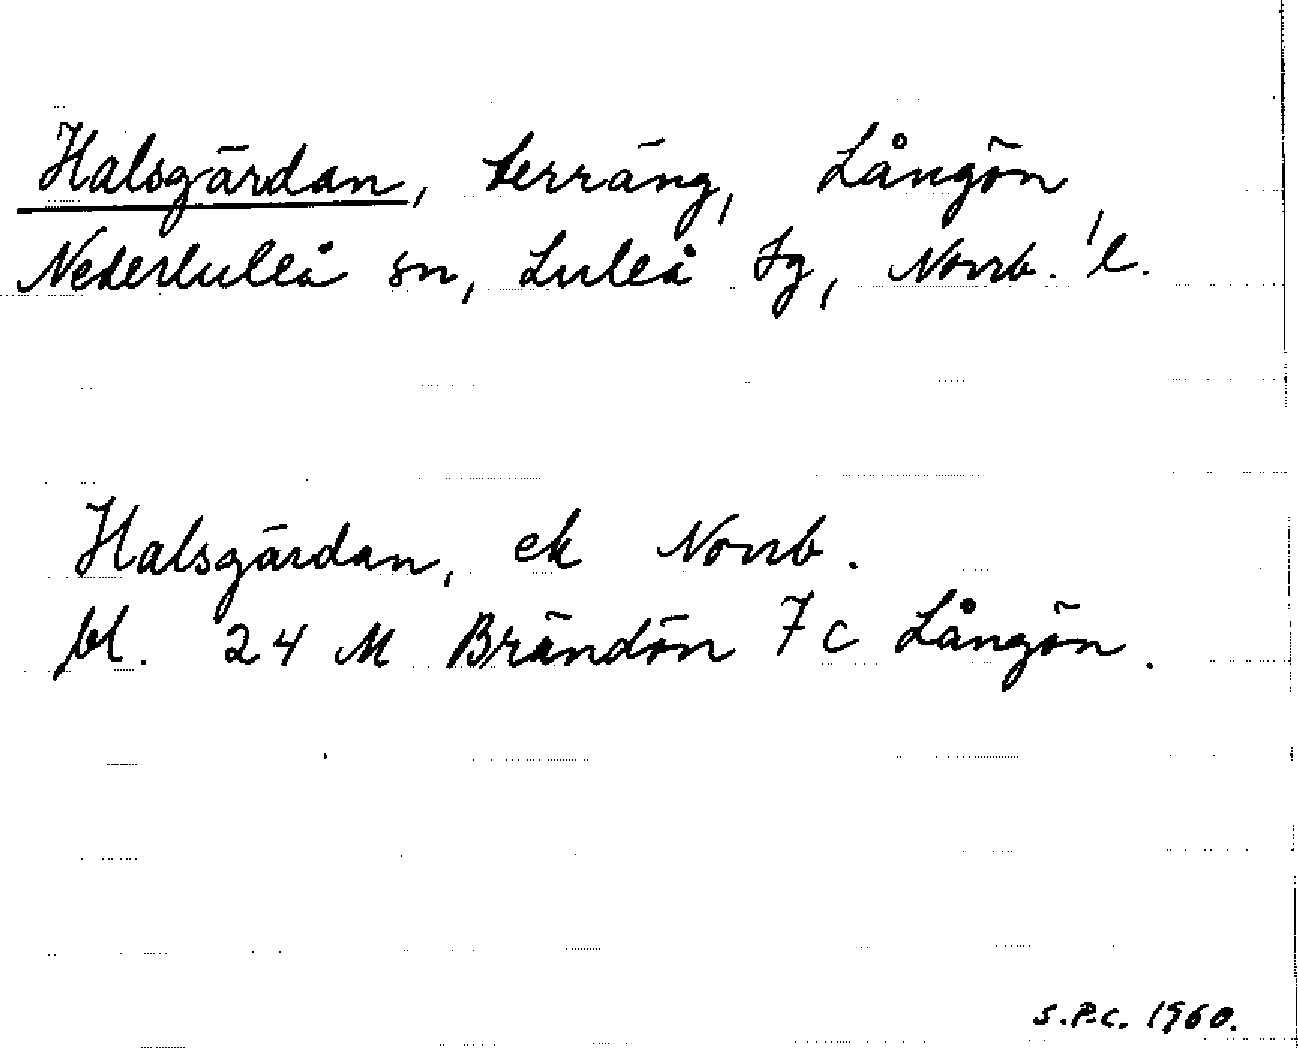 Halsgärdan, terräng, Långön,
Nederluleå sn, Luleå tg, Norrb. l.
Halsgärdan, ek Norrb.
bl. 24 M Brändön 7c Långön.
S.P.C. 1960.